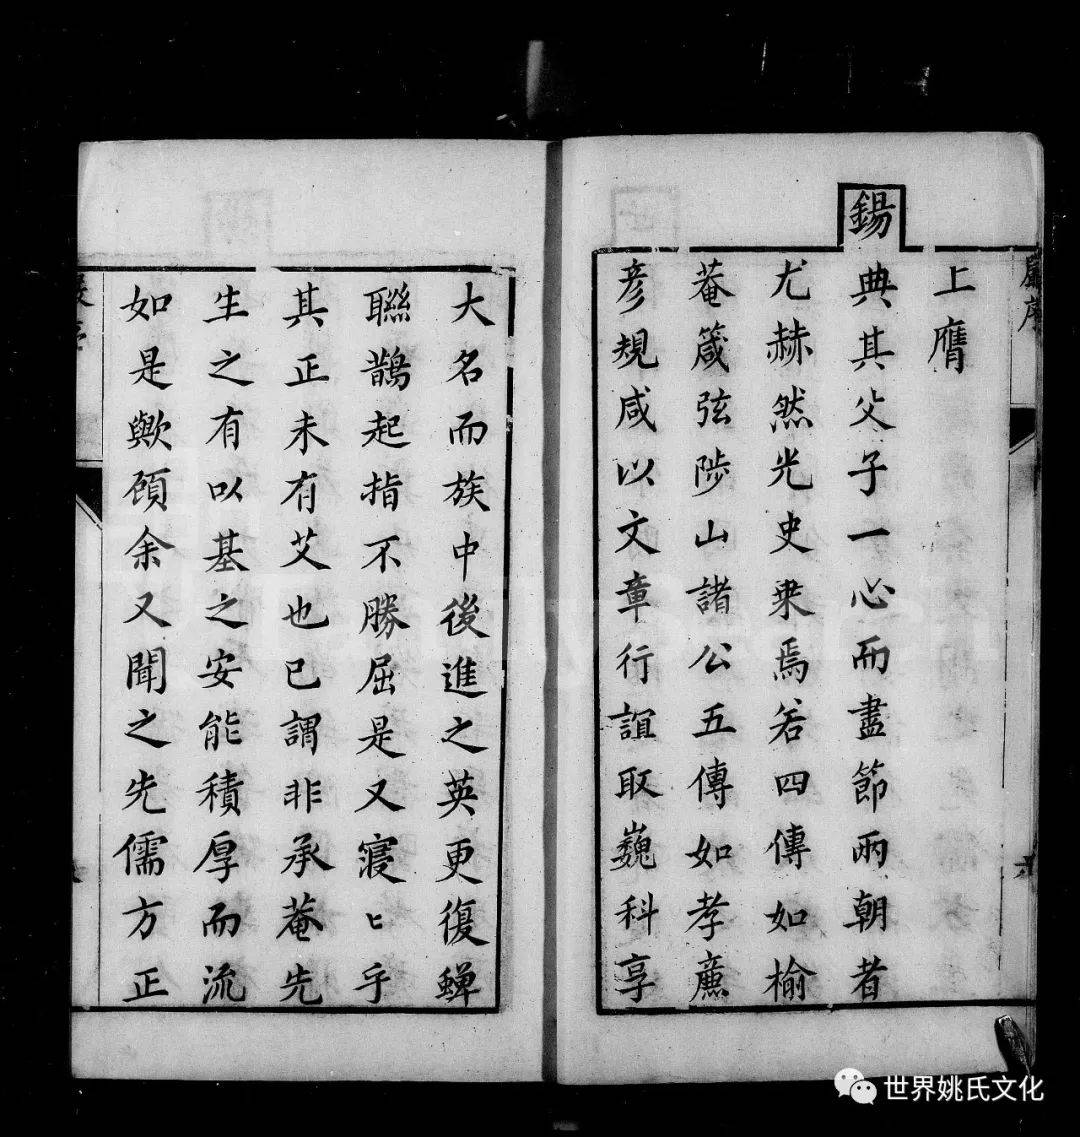 嚴序
上膺
錫典其父子一心而盡節兩朝者
尤赫然光史乗焉若四傳如榆
菴箴弦陟山諸公五傳如孝廉
彦規咸以文章行誼取巍科享
六
大名而族中後進之英更復蟬
聯鵲起指不勝屈是又寖〻乎
其正未有艾也已謂非承菴先
生之有以基之安能積厚而流
如是歟頋余又聞之先儒方正
FamilySearch
世界姚氏文化